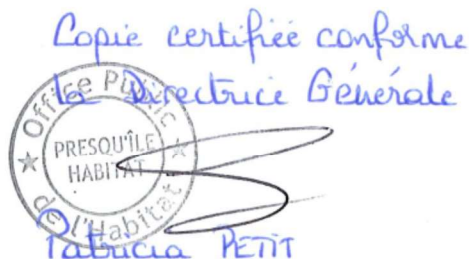 Copie certifiée conforme
la Directrice Générale
Office Public de l'Habitat
PRESQU'ÎLE
HABITAT
Patricia PETIT